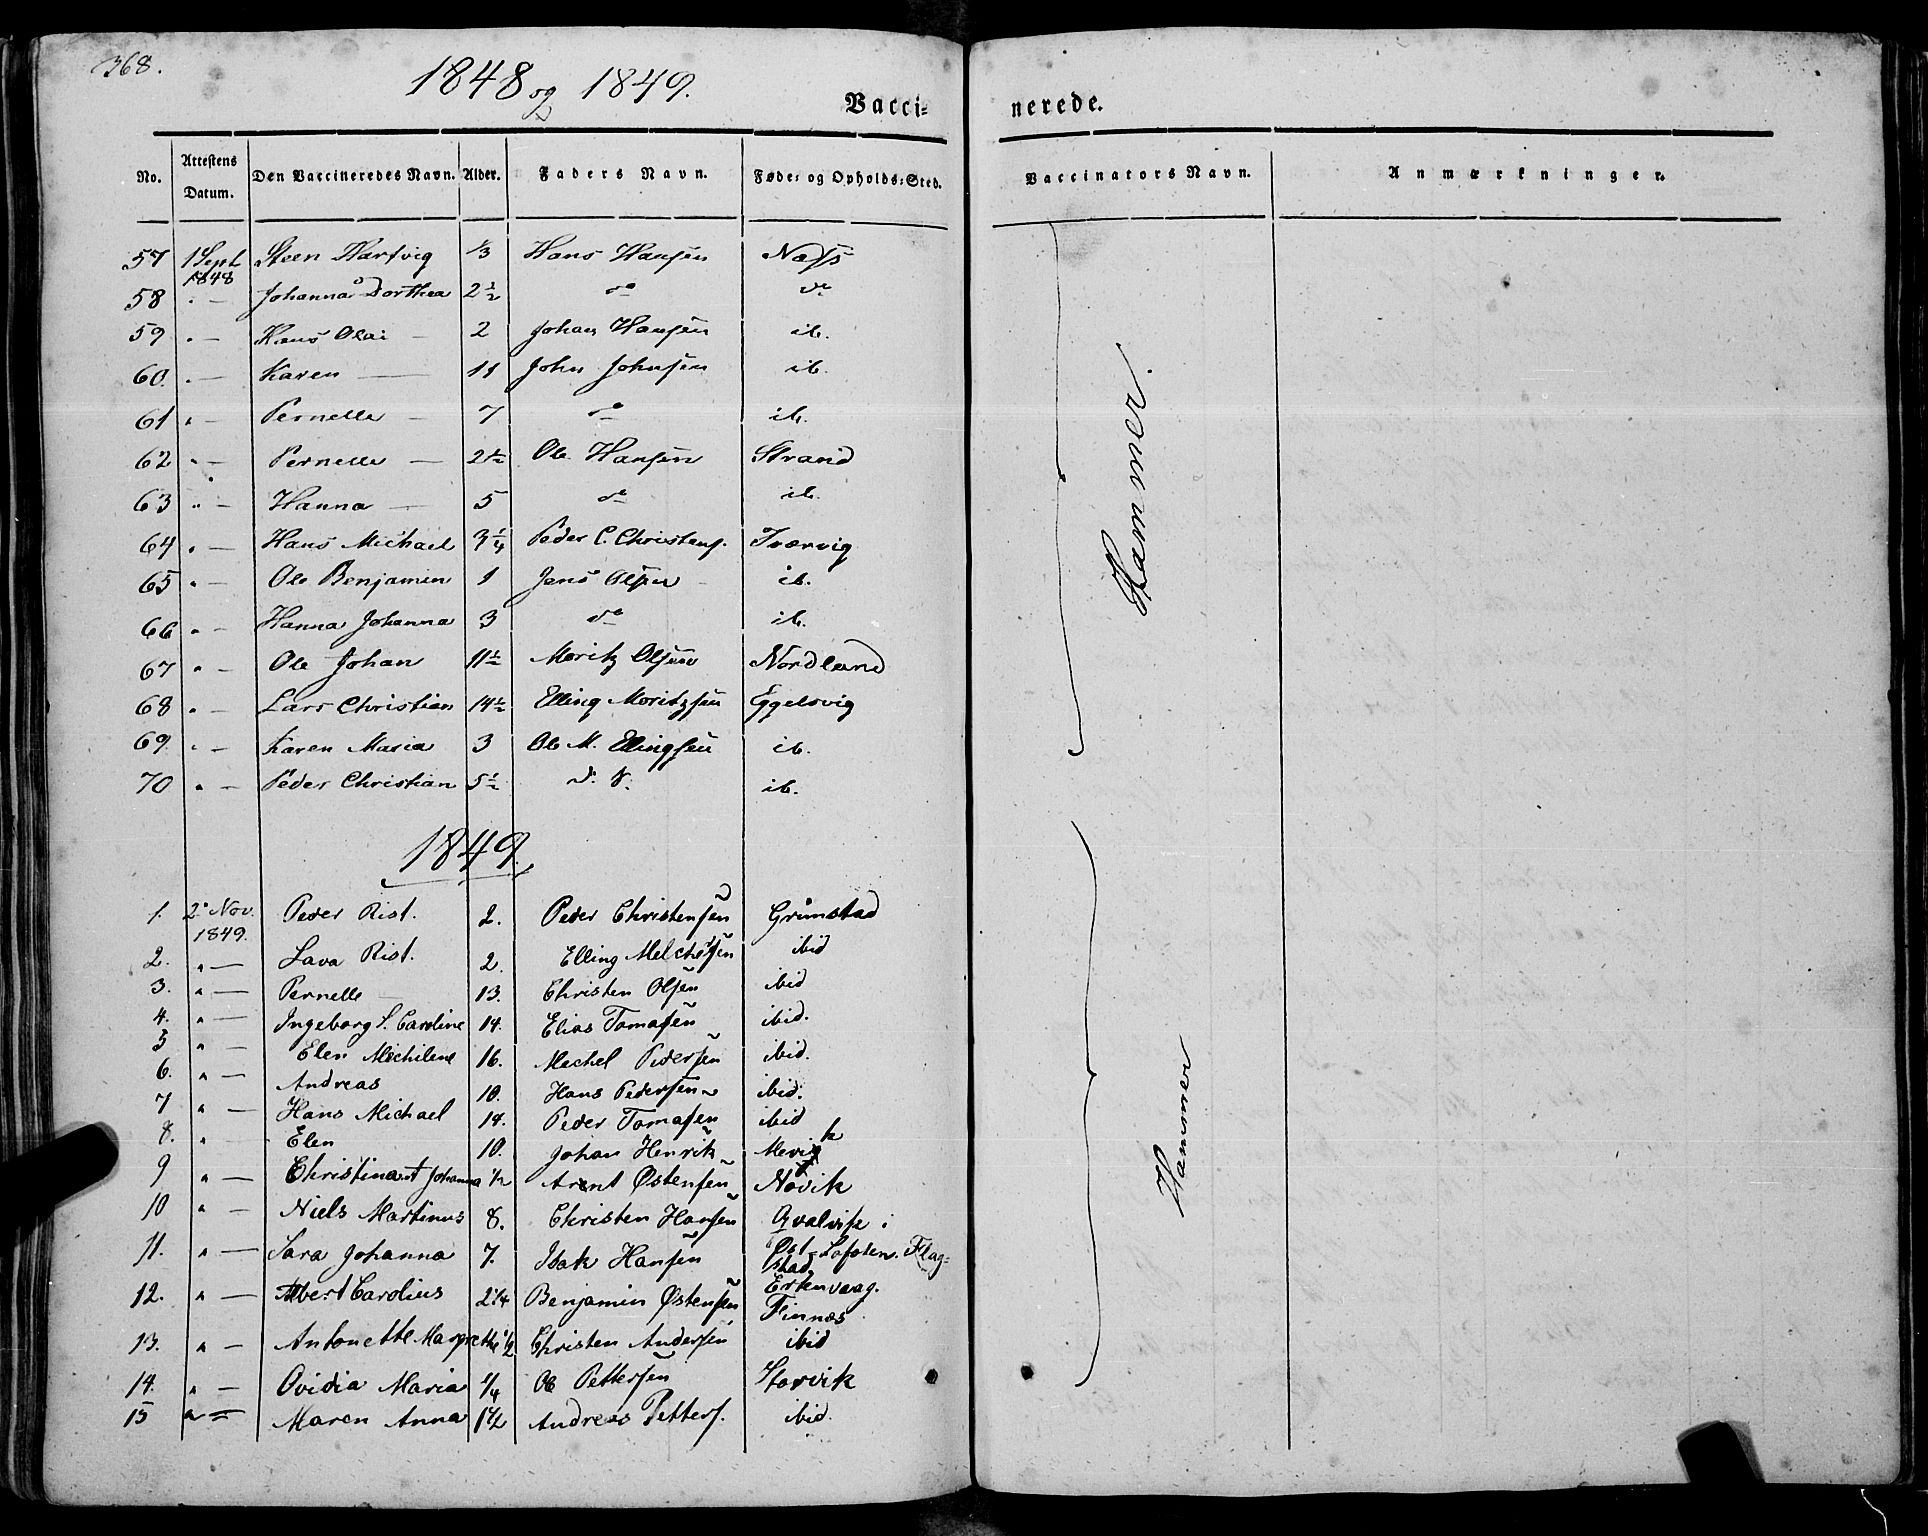 368.
1848 og 1849.
Vacci= nerede.
No. Attestens Datum. Den Vaccineredes Navn. Alder. Faders Navn. Føde= og Opholds=Sted. Vaccinators Navn. Anmærkninger.
57 1 Sept 1848 Steen Hartvig 1/3 Hans Hansen Næss
58 " — Johanna Dorthea 2 1/2 do do
59 " — Hans Olai — 2 Johan Hansen ib.
60. " — Karen — 11 John Johnsen ib.
61 " — Pernelle — 7 do ib.
62 " — Pernelle — 2 1/2 Ole Hansen Strand
63 " — Hanna — 5 do ib.
64 " — Hans Michael 3 1/4 Peder C. Christens. Tværvig
65 " — Ole Benjamin 1 Jens Olsen ib.
66 " — Hanna Johanna 3 do ib.
67 " — Ole Johan 11 1/2 Moritz Olsen Nordland
68 " — Lars Christian 14 1/2 Elling Moritzsen Eggelsvig
69. " — Karen Maria 3 Ole M. Ellingsen ib.
70 " — Peder Christian 5 1/2 d. o. ib.
Hammer.
1849.
1. 2. Nov. 1849. Peder Rist. 2. Peder Christensen Grimstad
2. " — Lava Rist. 2. Elling Melchersen ibid
3. " — Pernelle 13. Christen Olsen ibid
4. " — Ingeborg S. Caroline 14. Elias Tomasen ibid.
5 " — Elen Mechilene 16. Mechel Pedersen ibid.
6. " — Andreas 10. Hans Pedersen ibid.
7 " — Hans Michael 14. Peder Tomasen ibid
8. " — Elen 10. Johan Henrik Mevik
9 " — Christina Johanna 1/2 Arent Østensen Novik
10 " — Niels Martinus 8. Christen Hansen Qvalvik i
11. " — Sara Johanna 7. Isak Hansen Øst=Lofoten. Flag=
stad
12. " — Albert Carolius 2 1/4 Benjamin Østensen Erkenvaag.
Finnæs
13. " — Antonette Margrethe 1/2 Christen Andersen ibid
14. " — Ovidia Maria 1/4 Ole Pettersen Storvik
15 " — Maren Anna 1 1/2 Andreas Petters. ibid.
Hammer